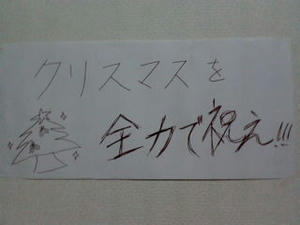 クリスマスを
全力で祝え!!!